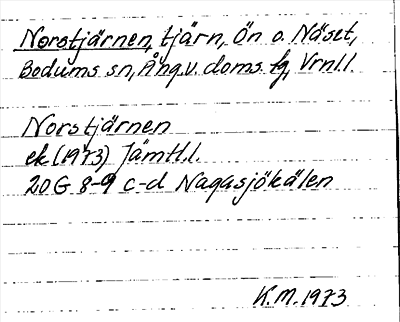 Norstjärnen, tjärn, Ön o. Näset,
Bodums sn, Ång.v. doms.fg, Vrnl.l.
Norstjärnen
ek (1973) Jämtl.l.
20 G 8-9 c-d Nagasjökälen
K.M. 1973